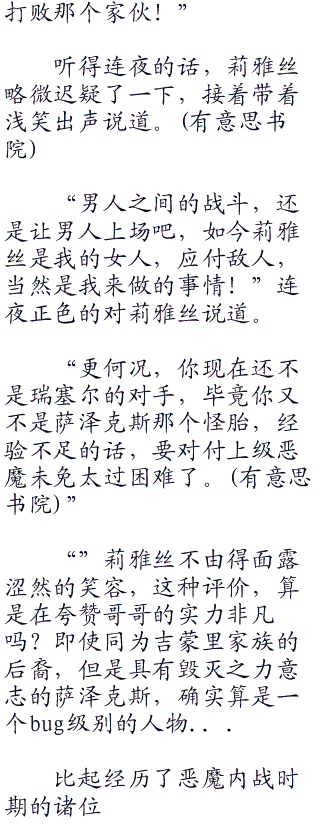 打败那个家伙！”
听得连夜的话，莉雅丝
略微迟疑了一下，接着带着
浅笑出声说道。(有意思书
院)
“男人之间的战斗，还
是让男人上场吧，如今莉雅
丝是我的女人，应付敌人，
当然是我来做的事情！”连
夜正色的对莉雅丝说道。
“更何况，你现在还不
是瑞塞尔的对手，毕竟你又
不是萨泽克斯那个怪胎，经
验不足的话，要对付上级恶
魔未免太过困难了。(有意思
书院)”
“”莉雅丝不由得面露
涩然的笑容，这种评价，算
是在夸赞哥哥的实力非凡
吗？即使同为吉蒙里家族的
后裔，但是具有毁灭之力意
志的萨泽克斯，确实算是一
个bug级别的人物．．．
比起经历了恶魔内战时
期的诸位